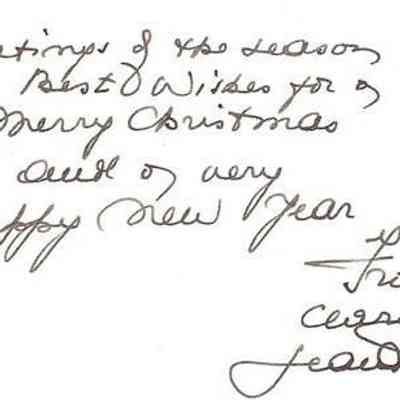 etings of the season
Best Wishes for a
Merry Christmas
and a very
ppy New Year